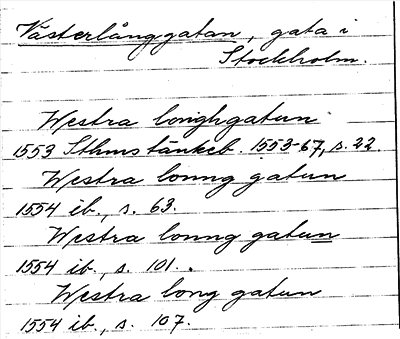 Västerlånggatan, gata i
Stockholm.
Westra longhgatun
1553 Sthms tänkeb. 1553-67, s. 22.
Westra lonng gatun
1554 ib., s. 63.
Westra lonng gatun
1554 ib., s. 101.
Westra long gatun
1554 ib., s. 107.